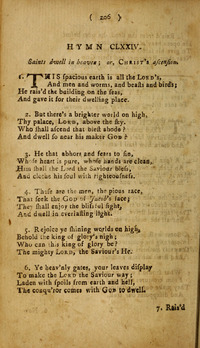 ( 206 )
HYMN CLXXIV.
Saints dwell in heaven; or, CHRIST's ascension.
1. THIS spacious earth is all the LORD's,
And men and worms, and beasts and birds;
He rais'd the building on the seas,
And gave it for their dwelling place.
2. But there's a brighter world on high,
Thy palace, LORD, above the sky.
Who shall ascend that blest abode?
And dwell so near his maker GOD?
3. He that abhors and fears to sin,
Whose heart is pure, whose hands are clean,
Him shall the LORD the Saviour bless,
And clothe his soul with righteousness.
4. These are the men, the pious race,
That seek the GOD of Jacob's face;
They shall enjoy the blissful sight,
And dwell in everlasting light.
5. Rejoice ye shining worlds on high,
Behold the king of glory's nigh;
Who can this king of glory be?
The mighty LORD, the Saviour's He.
6. Ye heav'nly gates, your leaves display
To make the LORD the Saviour way;
Laden with spoils from earth and hell,
The conqu'ror comes with GOD to dwell.
7. Rais'd